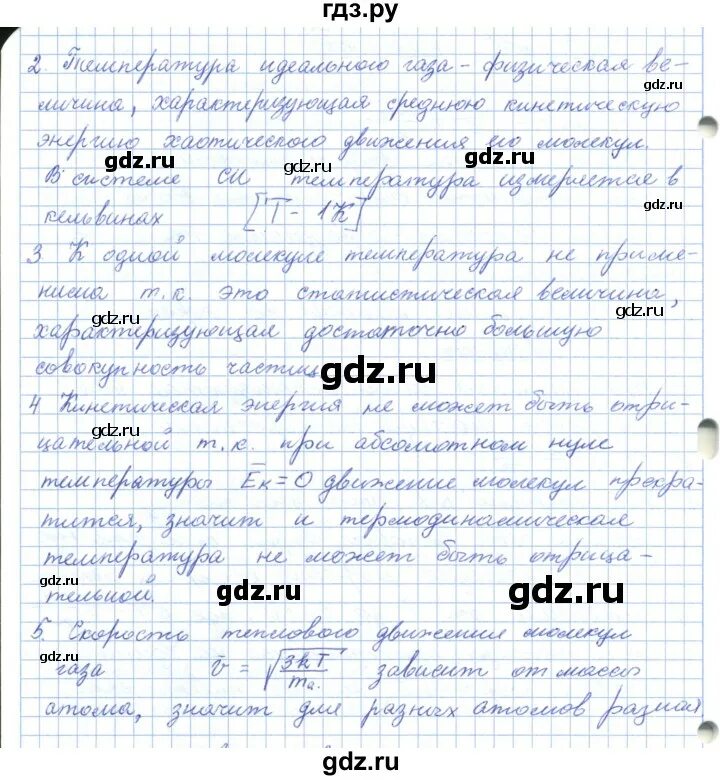 гдз.ру
2. Температура идеального газа - физическая ве-
личина, характеризующая среднюю кинетическую
энергию хаотического движения его молекул.
gdz.ru gdz.ru
В системе СИ температура измеряется в
gdz.ru gdz.ru
кельвинах [T - 1K]
3. К одной молекуле температура не приме-
нима т.к. это статистическая величина,
gdz.ru gdz.ru
характеризующая достаточно большую
совокупность частиц
gdz.ru
4 Кинетическая энергия не может быть отри-
gdz.ru gdz.ru
цательной т.к. при абсолютном нуле
температуры Eк = 0 движение молекул прекра-
gdz.ru gdz.ru
тится, значит и термодинамическая
температура не может быть отрица-
gdz.ru gdz.ru gdz.ru
тельной.
5. Скорость теплового движения молекул
gdz.ru gdz.ru
газа v = √3kT/mа. зависит от массы
атома, значит для разных атомов разная
gdz.ru gdz.ru
gdz.ru